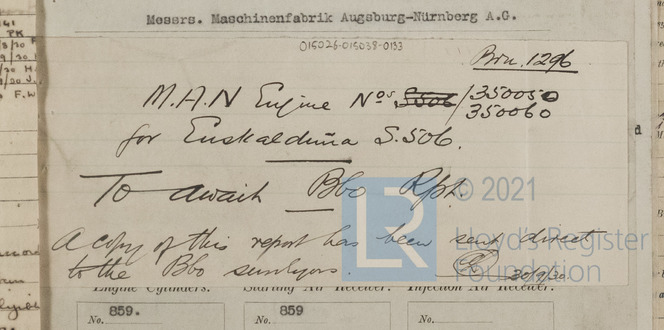 Messrs. Maschinenfabrik Augsburg-Nürnberg A.G.
015026-015038-0133
Brn. 1296
M.A.N Engine Nos S506 / 350050
350060
for Euskalduna S.506.
To await Bbo Rpt.
© 2021
LR
Lloyd's Register
Foundation
A copy of this report has been sent direct
to the Bbo surveyors.
30/9/30
Engine Cylinders. Starting Air Receiver. Injection Air Receiver.
No. 859. No. 859 No.